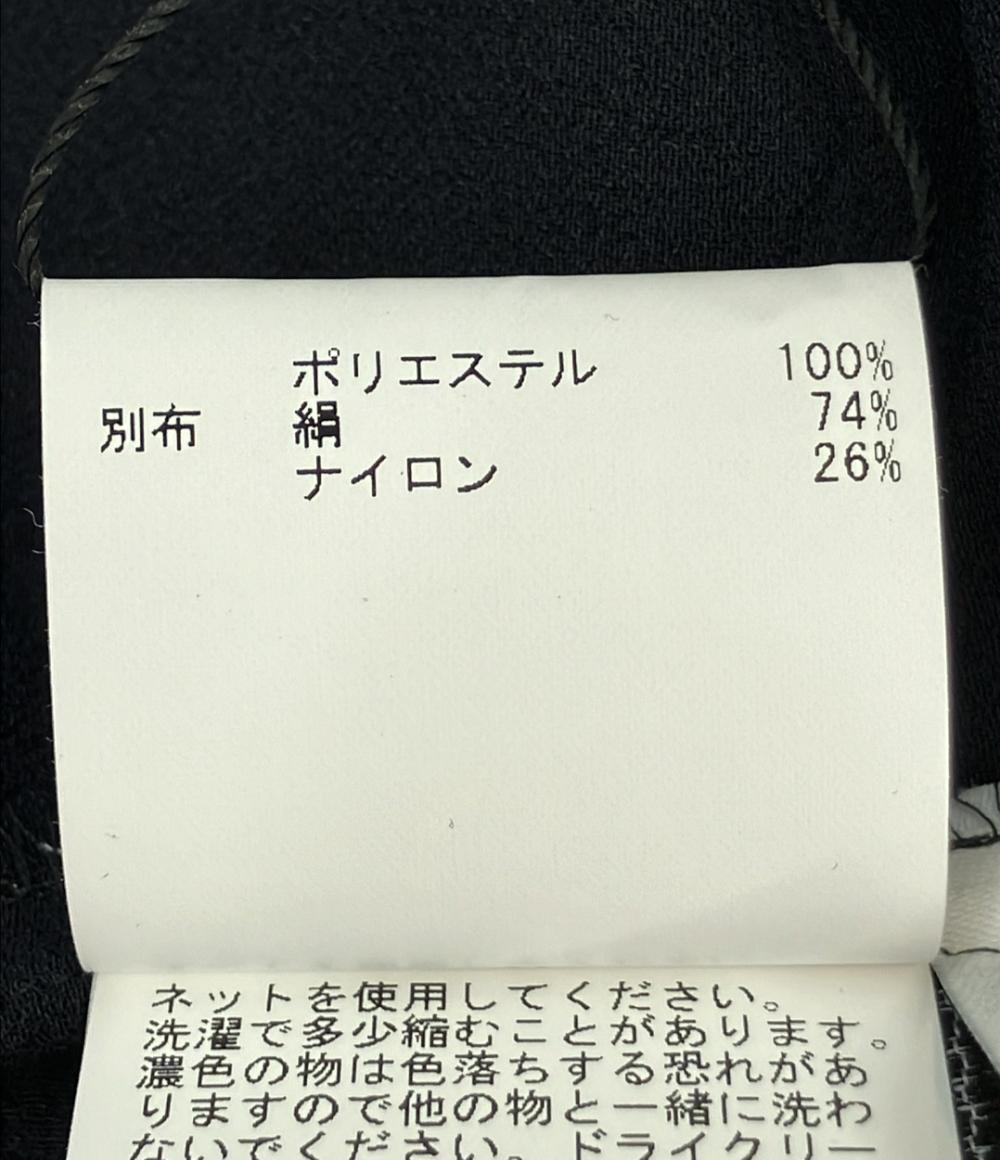 ポリエステル 100%
別布 絹 74%
ナイロン 26%
ネットを使用してください。
洗濯で多少縮むことがあります。
濃色の物は色落ちする恐れがあ
りますので他の物と一緒に洗わ
ないでください。ドライクリー